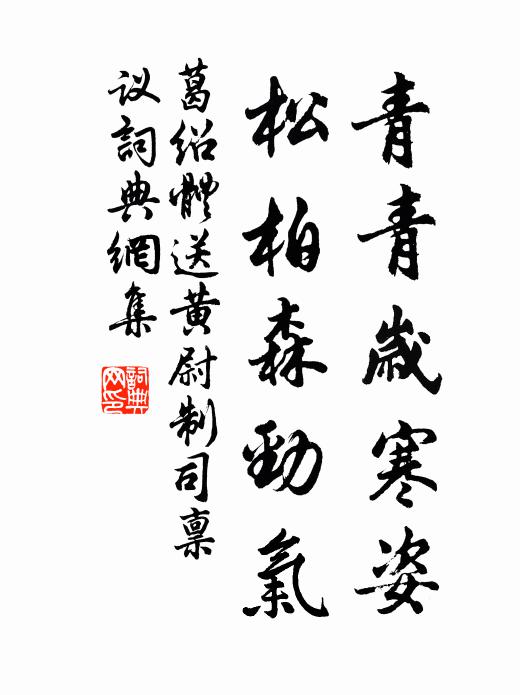 青青歲寒姿
松柏森勁氣
葛紹體送黃尉制司禀
议詞典網集
詞典网印